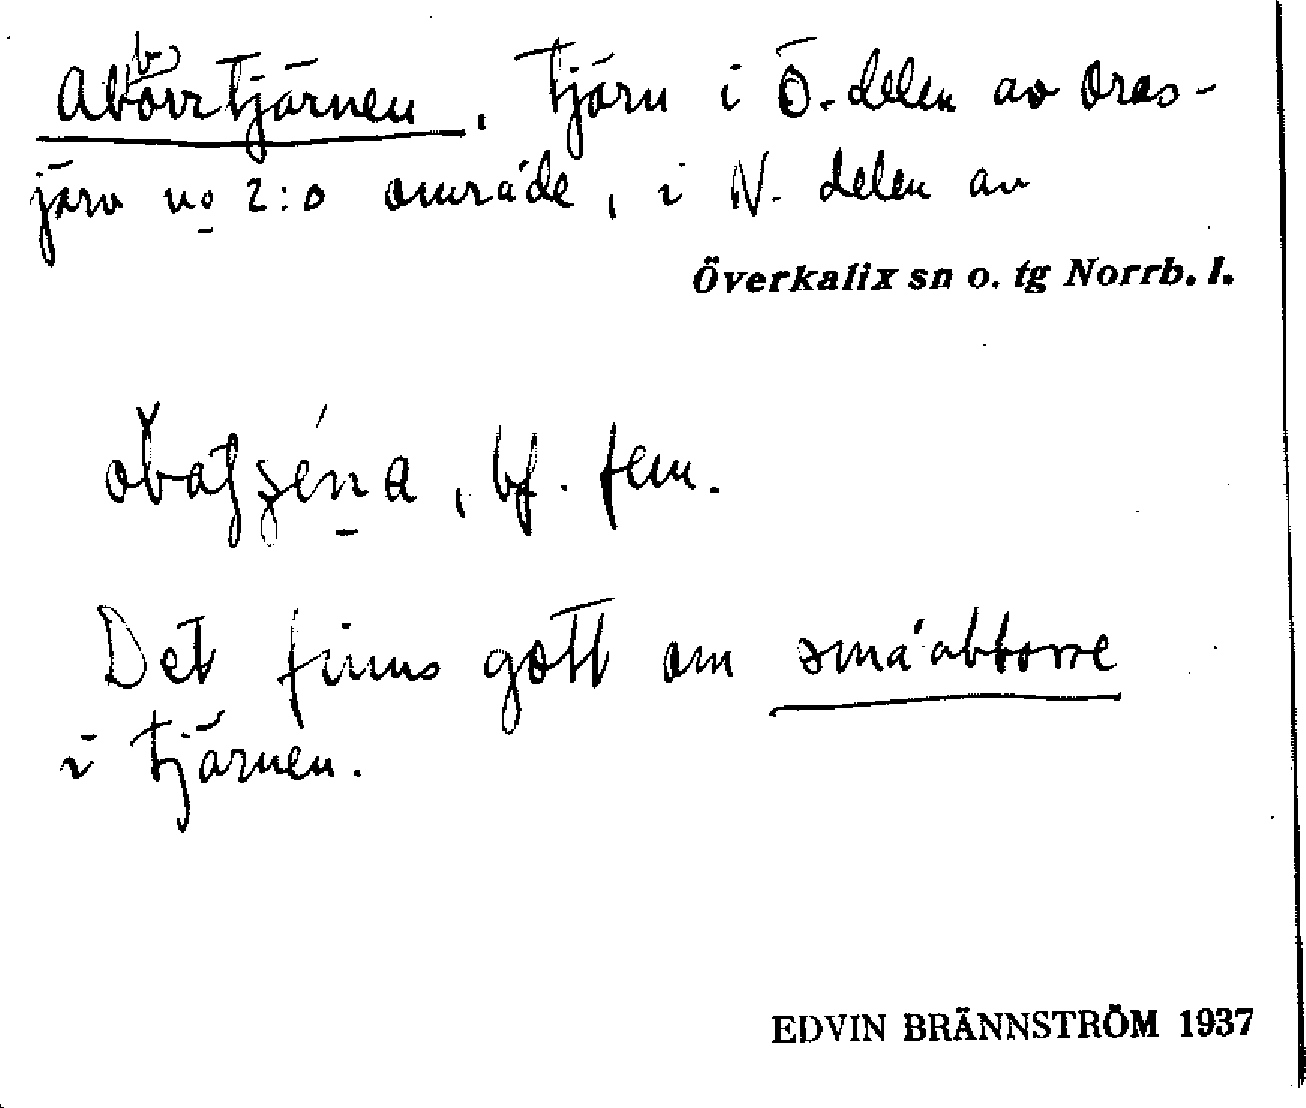 Abborrtjärnen, Tjärn i Ö.delen av Oras-
järv no 2:o område, i N. delen av
Överkalix sn o. tg Norrb. l.
bf. fem.
Det finns gott om småabborre
i tjärnen.
EDVIN BRÄNNSTRÖM 1937